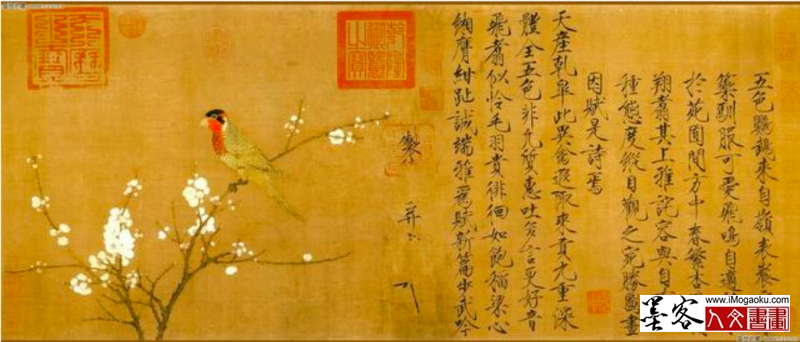 五色鸚鵡來自嶺表養
籞馴服可愛飛鳴自適
於苑囿間方中春繁杏
翔翥其上雅詫容與自
種態度縱目觀之宛勝圖畫
因賦是詩焉
天產乾皋此異禽遐陬來貢九重深
體全五色非凡質惠吐多言更好音
飛翥似憐毛羽貴徘徊如飽稻粱心
緗膺紺趾誠端雅為賦新篇步武吟
製
并
墨客
www.iMogaoku.com
人文書畫